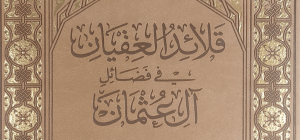 قلائد العقيان
في فضائل
آل عثمان